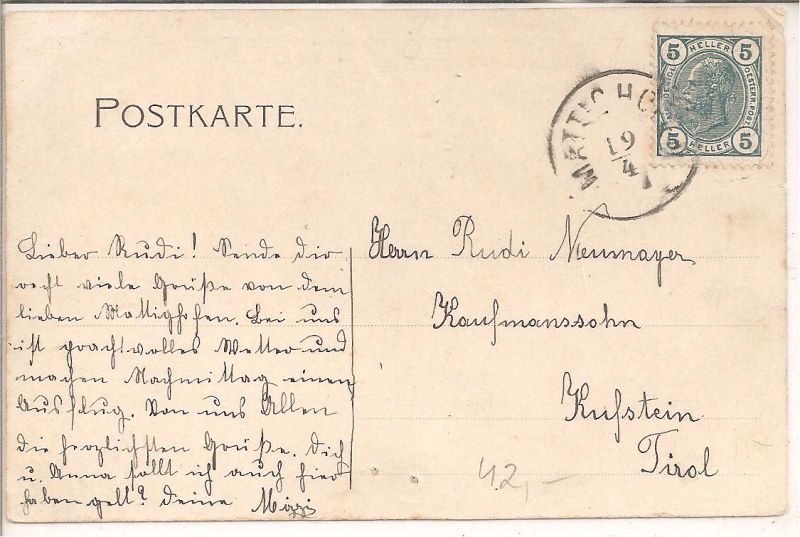 POSTKARTE.
5 HELLER 5
OESTERR. POST.
5 HELLER 5
MATTIGHOFEN
19
4
Lieber Rudi! Sende dir
recht viele Grüße von dem
lieben Mattighofen. Bei uns
ist prachtvolles Wetter und
machen Nachmittag einen
Ausflug. Von uns Allen
die herzlichsten Grüße. Dich
u. Anna sollt ich auch hier
haben gelt? Deine Mizzi
Herrn Rudi Neumayer
Kaufmanssohn
Kufstein
Tirol
42,-